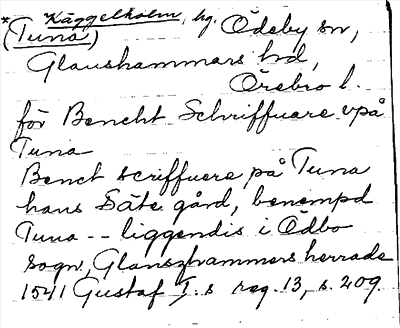 *Käggelholm, hg. Ödeby sn,
(Tuna)
Glanshammars hd,
Örebro l.
för Bencht Schriffuare vpå
Tuna
Benct scriffuere på Tuna
hans Säte gård, benempd
Tuna -- liggendis i Ödbo
sogn, Glanszhammers herrade
1541 Gustaf I:s reg. 13, s. 209.